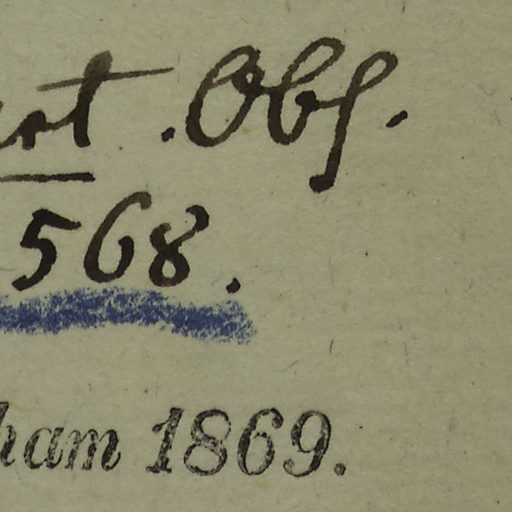 . Obs.
568.
ham 1869.